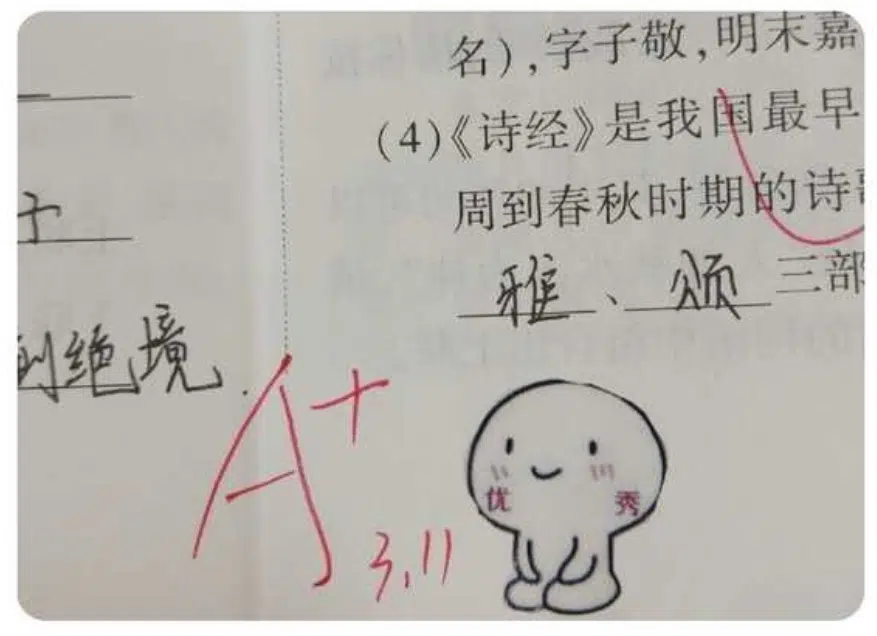 于
到绝境.
名),字子敬,明末嘉
(4)《诗经》是我国最早
周到春秋时期的诗
雅、颂三部
A+
3.11
优 秀